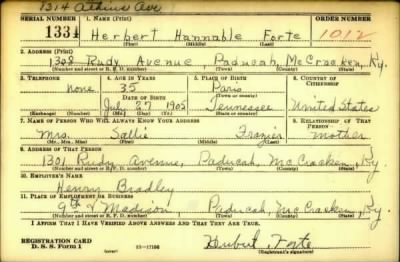 1314 Atkins Ave
SERIAL NUMBER 1. NAME (Print) ORDER NUMBER (Print)
1334 Herbert Hannable Forte 1012
(First) (Middle) (Last)
2. ADDRESS (Print)
1308 Rudy Avenue, Paducah, McCracken, Ky.
(Number and street or R. F. D. number) (Town) (County) (State)
3. TELEPHONE 4. AGE IN YEARS 5. PLACE OF BIRTH 6. COUNTRY OF CITIZENSHIP
None 35 Paris
DATE OF BIRTH
July 27 1905 Tennessee United States
(Exchange) (Number) (Mo.) (Day) (Yr.) (State or country)
7. NAME OF PERSON WHO WILL ALWAYS KNOW YOUR ADDRESS 8. RELATIONSHIP OF THAT PERSON
Mrs. Sallie Frazier Mother
(Mr., Mrs., Miss) (First) (Middle) (Last)
9. ADDRESS OF THAT PERSON
1301 Rudy Avenue, Paducah, McCracken, Ky.
(Number and street or R. F. D. number) (Town) (County) (State)
10. EMPLOYER'S NAME
Henry Bradley
11. PLACE OF EMPLOYMENT OR BUSINESS
9th & Madison Paducah, McCracken, Ky.
(Number and street or R. F. D. number) (Town) (County) (State)
I AFFIRM THAT I HAVE VERIFIED ABOVE ANSWERS AND THAT THEY ARE TRUE.
REGISTRATION CARD
D. S. S. Form 1 Herbert Forte
(Registrant's signature)